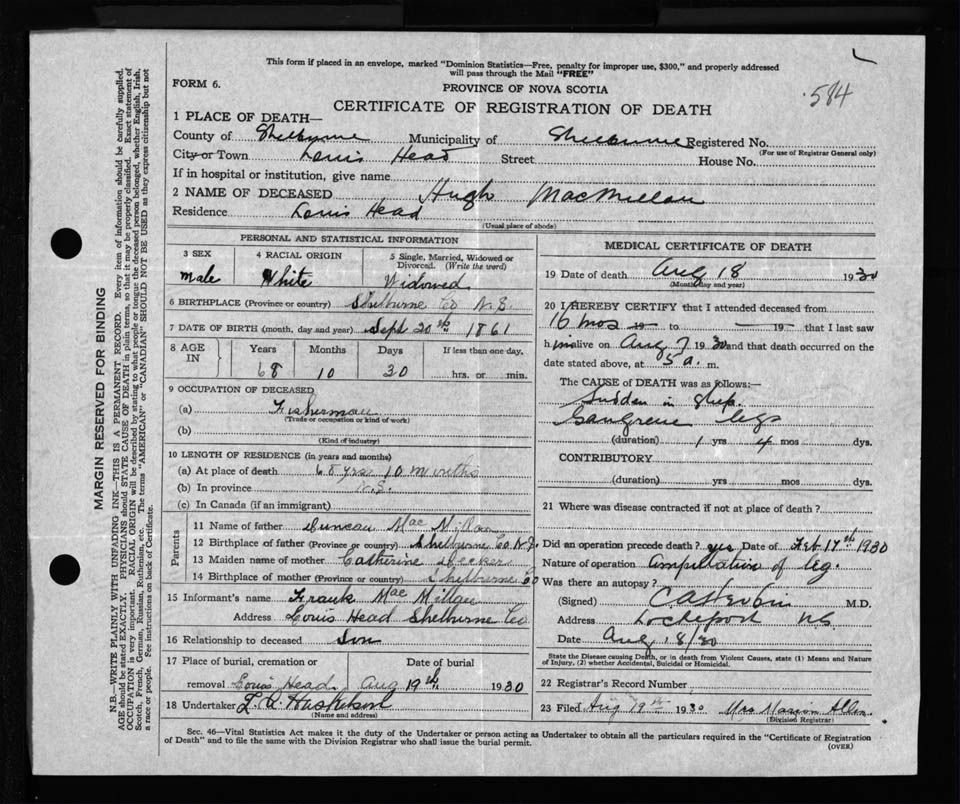 This form if placed in an envelope, marked "Dominion Statistics—Free, penalty for improper use, $300," and properly addressed
will pass through the Mail "FREE"
584
FORM 6.
PROVINCE OF NOVA SCOTIA
CERTIFICATE OF REGISTRATION OF DEATH
1 PLACE OF DEATH—
County of Shelburne Municipality of Shelburne Registered No.
(For use of Registrar General only)
City or Town Louis Head Street House No.
If in hospital or institution, give name
2 NAME OF DECEASED Hugh MacMillan
Residence Louis Head
(Usual place of abode)
PERSONAL AND STATISTICAL INFORMATION
3 SEX 4 RACIAL ORIGIN 5 Single, Married, Widowed or Divorced. (Write the word)
male White Widowed
6 BIRTHPLACE (Province or country) Shelburne Co N.S.
7 DATE OF BIRTH (month, day and year) Sept 20th 1861
8 AGE IN Years Months Days If less than one day.
68 10 30 hrs. or min.
9 OCCUPATION OF DECEASED
(a) Fisherman
(Trade or occupation or kind of work)
(b)
(Kind of industry)
10 LENGTH OF RESIDENCE (in years and months)
(a) At place of death 68 yrs 10 months
(b) In province N.S.
(c) In Canada (if an immigrant)
Parents
11 Name of father Duncan MacMillan
12 Birthplace of father (Province or country) Shelburne Co N.S.
13 Maiden name of mother Catherine
14 Birthplace of mother (Province or country) Shelburne Co
15 Informant's name Frank MacMillan
Address Louis Head Shelburne Co.
16 Relationship to deceased Son
17 Place of burial, cremation or Date of burial
removal Louis Head Aug 19th 1930
18 Undertaker
(Name and address)
MEDICAL CERTIFICATE OF DEATH
19 Date of death Aug 18 1930
(Month, day and year)
20 I HEREBY CERTIFY that I attended deceased from
16 mos 19 to 19 that I last saw
him alive on Aug 7 1930 and that death occurred on the
date stated above, at 5 a. m.
The CAUSE of DEATH was as follows:—
Sudden in sleep.
Gangrene legs
(duration) 1 yrs 4 mos dys.
CONTRIBUTORY
(duration) yrs. mos. dys.
21 Where was disease contracted if not at place of death?
Did an operation precede death? yes Date of Feb 17th 1930
Nature of operation Amputation of leg.
Was there an autopsy?
(Signed) M.D.
Address Lockeport NS
Date Aug 18/30
State the Disease causing Death, or in death from Violent Causes, state (1) Means and Nature
of Injury, (2) whether Accidental, Suicidal or Homicidal.
22 Registrar's Record Number
23 Filed Aug 19th 1930 Mrs Marion Allen
(Division Registrar)
Sec. 46—Vital Statistics Act makes it the duty of the Undertaker or person acting as Undertaker to obtain all the particulars required in the "Certificate of Registration
of Death" and to file the same with the Division Registrar who shall issue the burial permit.
(OVER)
MARGIN RESERVED FOR BINDING
N.B.—WRITE PLAINLY WITH UNFADING INK—THIS IS A PERMANENT RECORD. Every item of information should be carefully supplied.
AGE should be stated EXACTLY. PHYSICIANS should STATE CAUSE OF DEATH in plain terms, so that it may be properly classified. Exact statement of
OCCUPATION is very important. RACIAL ORIGIN will be described by stating to what people or tongue the deceased person belonged, whether English, Irish,
Scotch, French, German, Russian, Ruthenian, etc. The terms "AMERICAN" or "CANADIAN" SHOULD NOT BE USED as they express citizenship but not
a race or people. See instructions on back of Certificate.